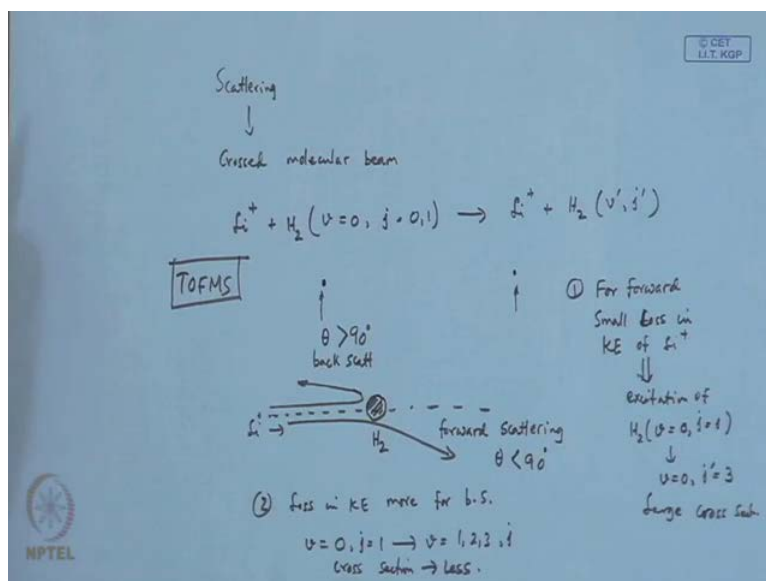 © CET
I.I.T. KGP
Scattering
↓
Crossed molecular beam
Li⁺ + H₂ (v=0, j=0,1) → Li⁺ + H₂ (v', j')
TOFMS
θ > 90°
back scatt
Li⁺ →
H₂
forward scattering
θ < 90°
① For forward
Small loss in
KE of Li⁺
⇓
excitation of
H₂ (v=0, j=1)
↓
v=0, j'=3
Large cross sec.
② Loss in KE more for b.s.
v=0, j=1 → v=1,2,3, j
Cross section → less.
NPTEL